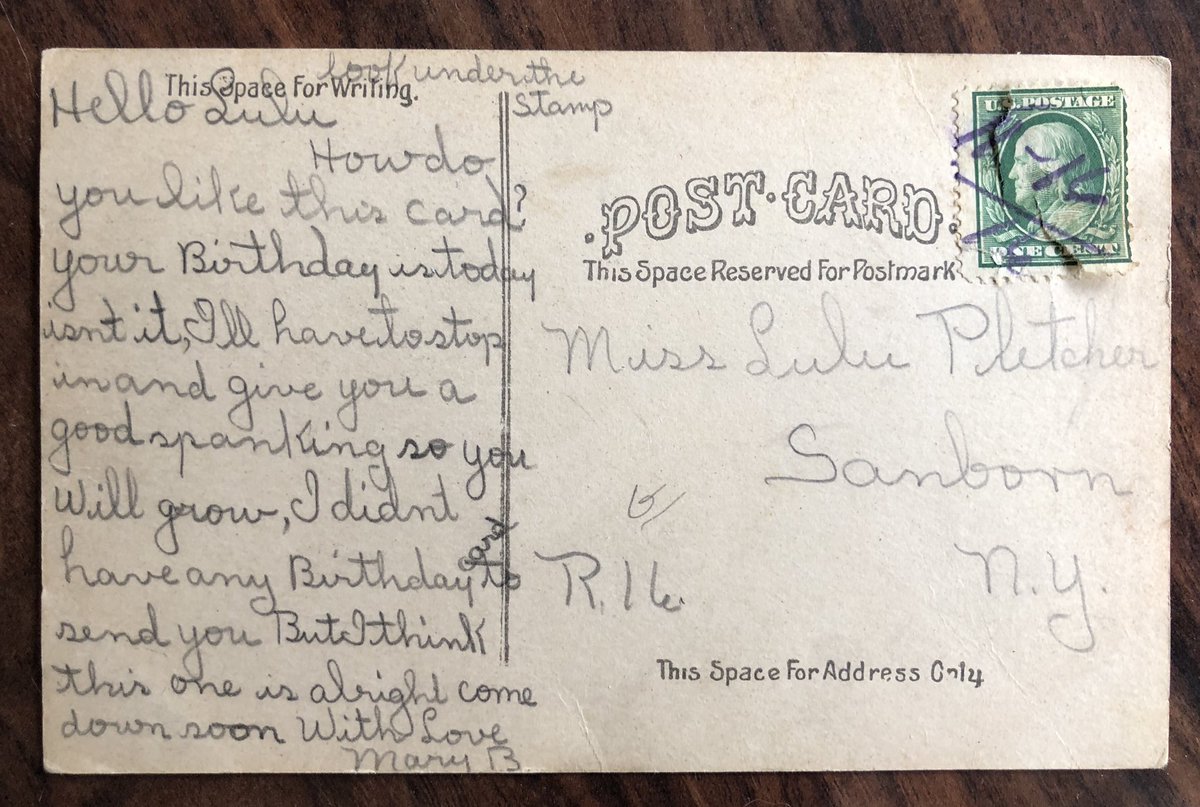 look under the
Stamp
This Space For Writing.
Hello Lulu
How do
you like this card?
your Birthday is today
isnt it, I'll have to stop
in and give you a
good spanking so you
will grow, I didnt
have any Birthday card to
send you But I think
this one is alright come
down soon With Love
Mary B.
U.S. POSTAGE
ONE CENT
POST·CARD.
This Space Reserved For Postmark
Miss Lulu Pletcher
Sanborn
R. 16. N.Y.
This Space For Address Only